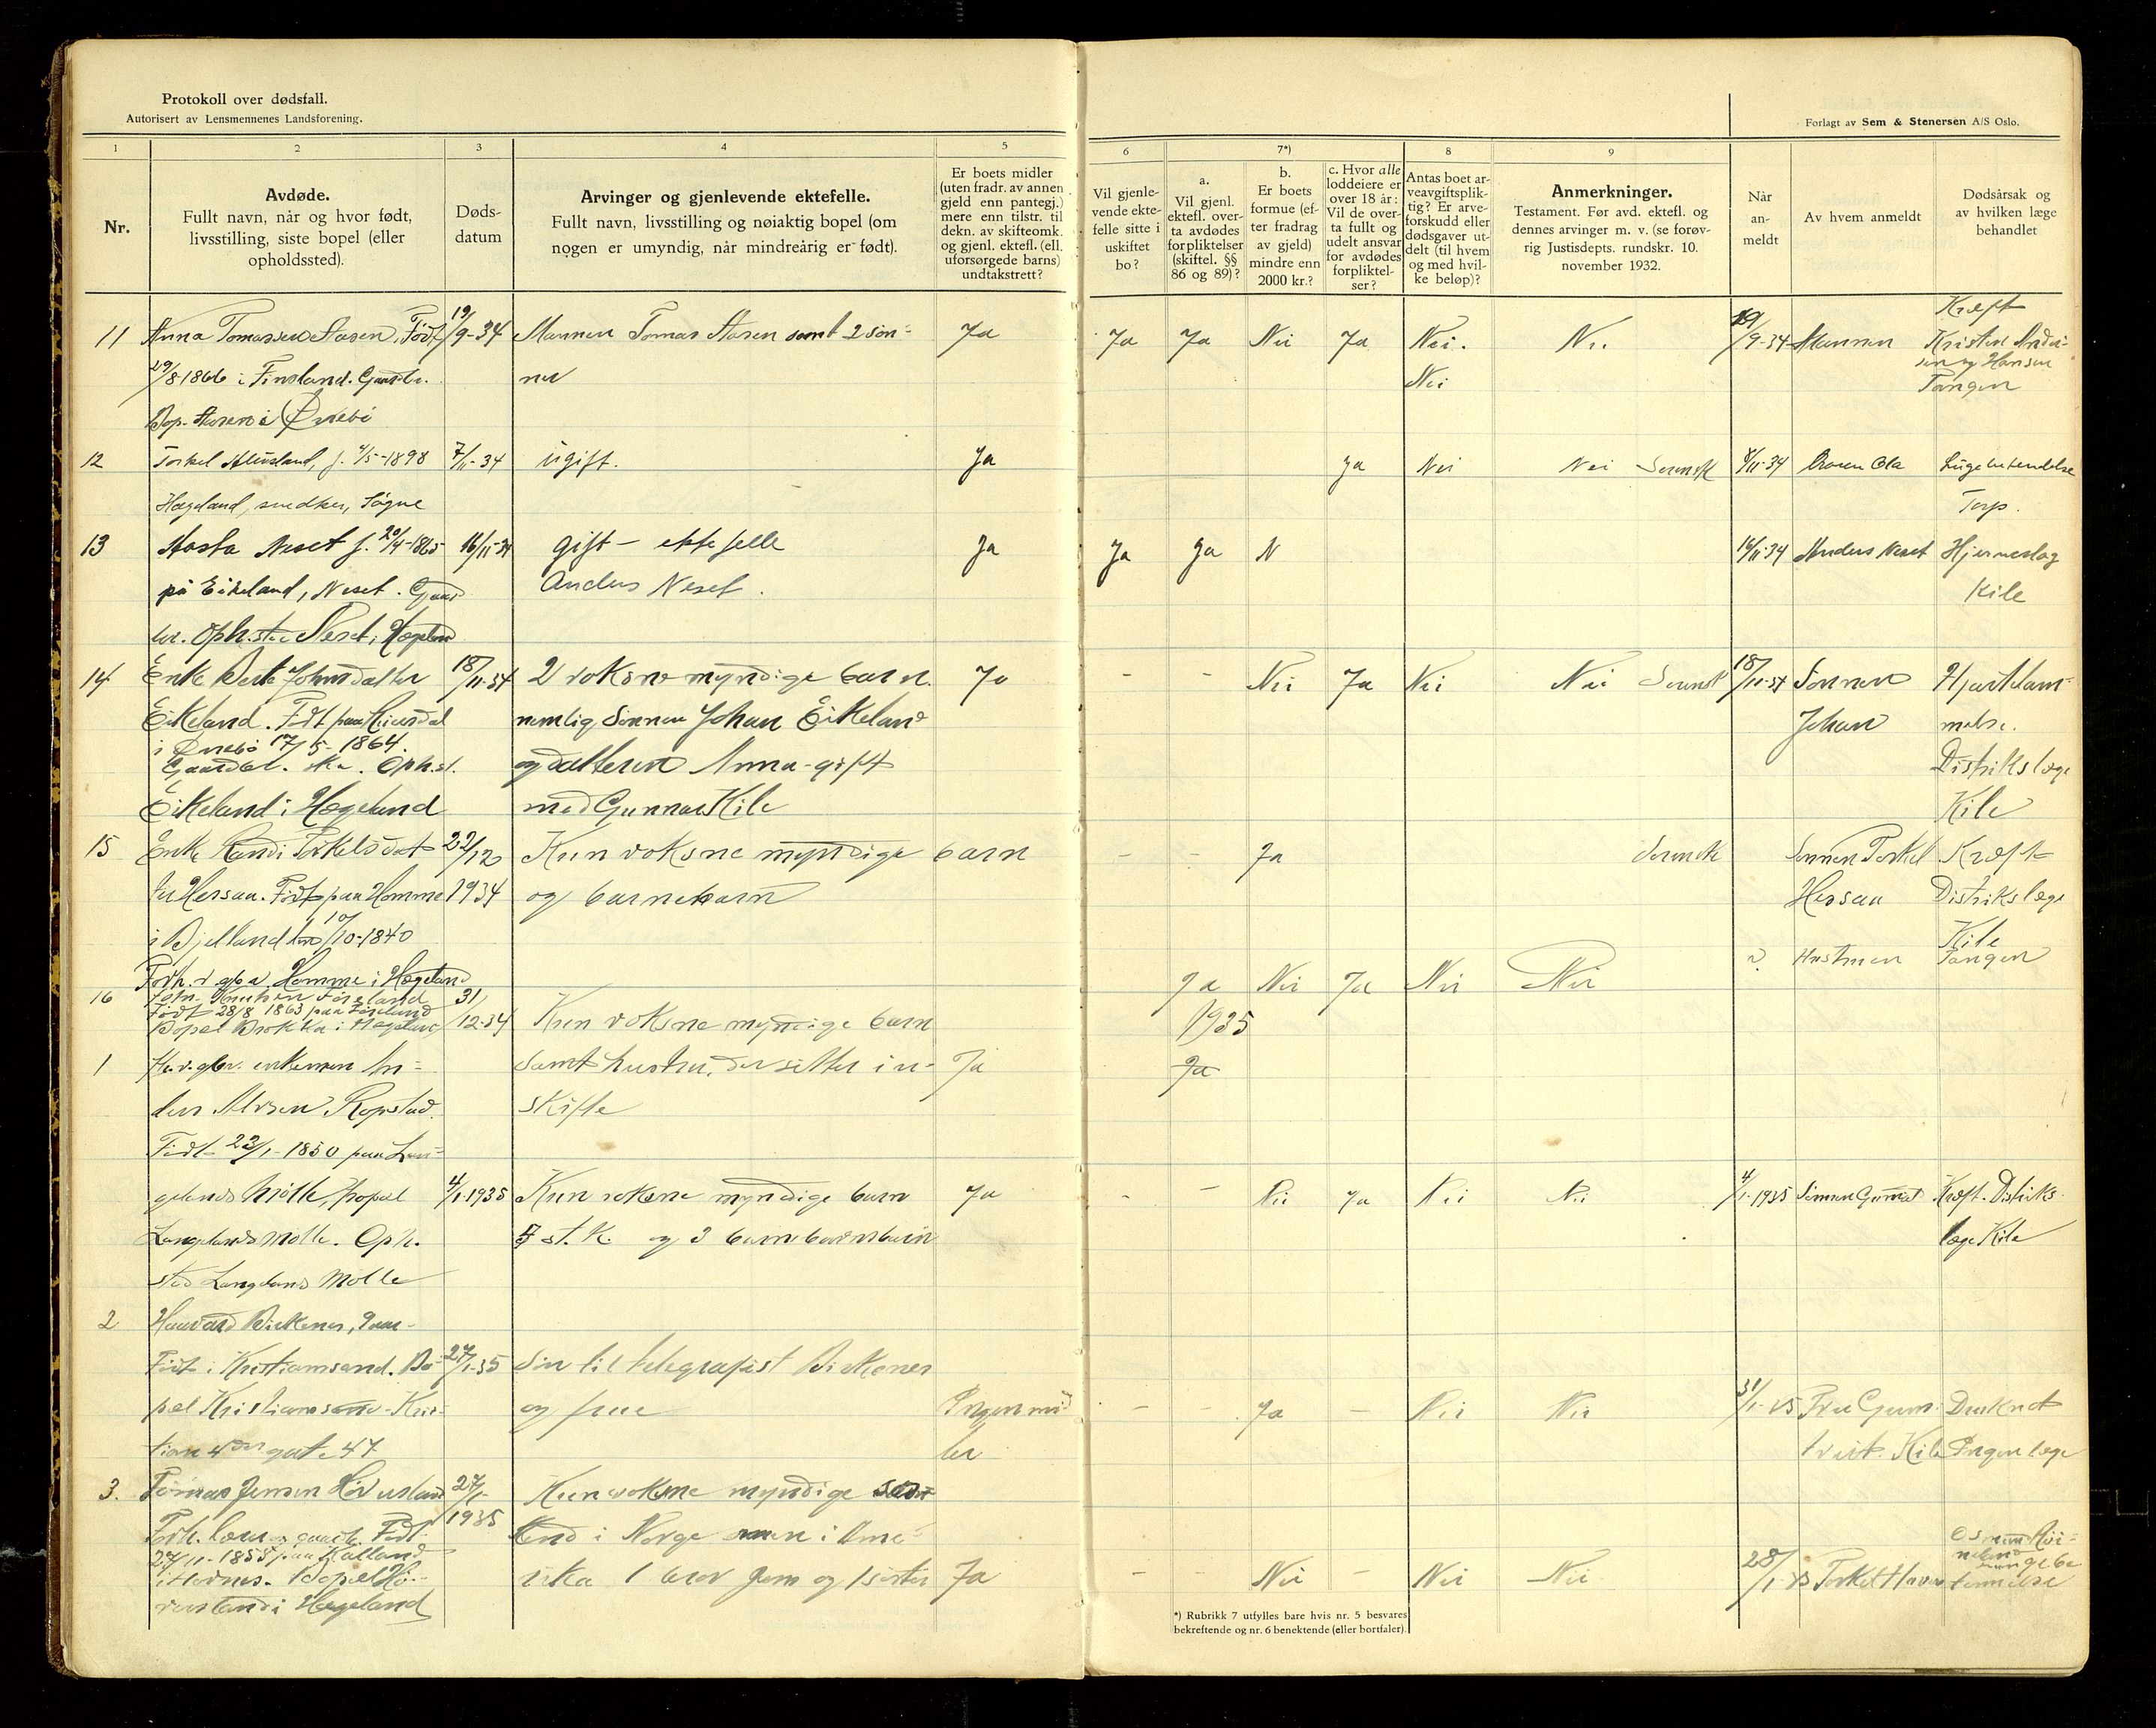 Protokoll over dødsfall.
Autorisert av Lensmennenes Landsforening.
Forlagt av Sem & Stenersen A/S Oslo.
1
2
3
4
5
6
7*)
8
9
Nr.
Avdøde.
Fullt navn, når og hvor født,
livsstilling, siste bopel (eller
opholdssted).
Døds-
datum
Arvinger og gjenlevende ektefelle.
Fullt navn, livsstilling og nøiaktig bopel (om
nogen er umyndig, når mindreårig er født).
Er boets midler
(uten fradr. av annen
gjeld enn pantegj.)
mere enn tilstr. til
dekn. av skifteomk.
og gjenl. ektefl. (ell.
uforsørgede barns)
undtakstrett?
Vil gjenle-
vende ekte-
felle sitte i
uskiftet
bo?
a.
Vil gjenl.
ektefl. over-
ta avdødes
forpliktelser
(skiftel. §§
86 og 89)?
b.
Er boets
formue (ef-
ter fradrag
av gjeld)
mindre enn
2000 kr.?
c. Hvor alle
loddeiere er
over 18 år:
Vil de over-
ta fullt og
udelt ansvar
for avdødes
forpliktel-
ser?
Antas boet ar-
veavgiftsplik-
tig? Er arve-
forskudd eller
dødsgaver ut-
delt (til hvem
og med hvil-
ke beløp)?
Anmerkninger.
Testament. Før avd. ektefl. og
dennes arvinger m. v. (se forøv-
rig Justisdepts. rundskr. 10.
november 1932.
Når
an-
meldt
Av hvem anmeldt
Dødsårsak og
av hvilken læge
behandlet
11 Anna Tomassen Aasen, Født 19/9-34 Mannen Tomas Aasen samt 2 søn- Ja Ja Ja Nei Ja Nei. 19/9-34 Mannen Kræft
29/8 1866 i Finsland. ner Nei Kristen Ander-
sen og Hansen
Tangen
Bop. Aasen i Øvrebø
12 f. 4/5-1898 7/11-34 ugift. Ja Ja Nei Nei 8/11-34 Ola
Hægeland, snedker, Søgne Torp.
13 Aasta Neset f. 20/4-1865 16/11-34 gift - ektefelle Ja Ja Ja N 16/11-34 Anders Neset Hjerneslag
på Eikeland, Neset. Gaard Anders Neset. Kile
br. Oph.sted Neset i Hægeland
14 Enke Berte Johnsdatter 18/11-34 2 voksne myndige barn. Ja - - Nei Ja Nei Nei 18/11-34 Sønnen Hjertelam-
Eikeland. Født paa nemlig Sønnen Johan Eikeland Johan melse.
i Øvrebø 17/5-1864.
Gaardbr. Oph.st. og datteren Anna - gift Distrikslæge
Eikeland i Hægeland med Gunnar Kile Kile
15 Enke Randi Torkelsdat- 22/12 Kun voksne myndige barn - - Ja Sønnen Torkel Kræft
ter Hersaa. Født paa Homme 1934 og barnebarn Hersaa Distrikslæge
i Bjelland den 10/10-1840 Kile
Forh. v. gbr. Homme i Hægeland Ja Nei Ja Nei Nei ? Hustruen Tangen
16 Knutsen 31/12-34 Kun voksne myndige barn 1935
Født 28/8 1863 paa
Bopel i Hægeland
1 enkemann An- samt hustru, der sitter i u- Ja Ja
ders Alvsen Ropstad. skifte
Født 23/1-1850 paa Lan-
gelands Mølle, bopel 4/1-1935 Kun voksne myndige barn Ja - - Nei Ja Nei Nei 4/1-1935 Sønnen Gunvald Kræft. Distriks-
Langelands Mølle. Oph. st. K. og 3 barnebarnsbarn læge Kile
sted Langelands Mølle
2 Haavard Birkenes, 9 aar-
Født i Kristiansand. Bo- 27/1-35 Søn til telegrafist Birkenes
pel Kristiansand - Kris- og frue Ingen mid- - - Ja - Nei Nei 31/1-35 Fru Druknet
tian 4des gate 47 ler Kile Ingen læge
3. Tomas Jensen 27/1- Kun voksne myndige
Forh. Født 1935 i Norge men i Ame-
27/11-1855 paa
i Hornes. Bopel Hø- rika 1 bror Jens og 1 søster Ja - - Nei - Nei Nei 28/1-35 Torkel
i Hægeland
*) Rubrikk 7 utfylles bare hvis nr. 5 besvares
bekreftende og nr. 6 benektende (eller bortfaler).